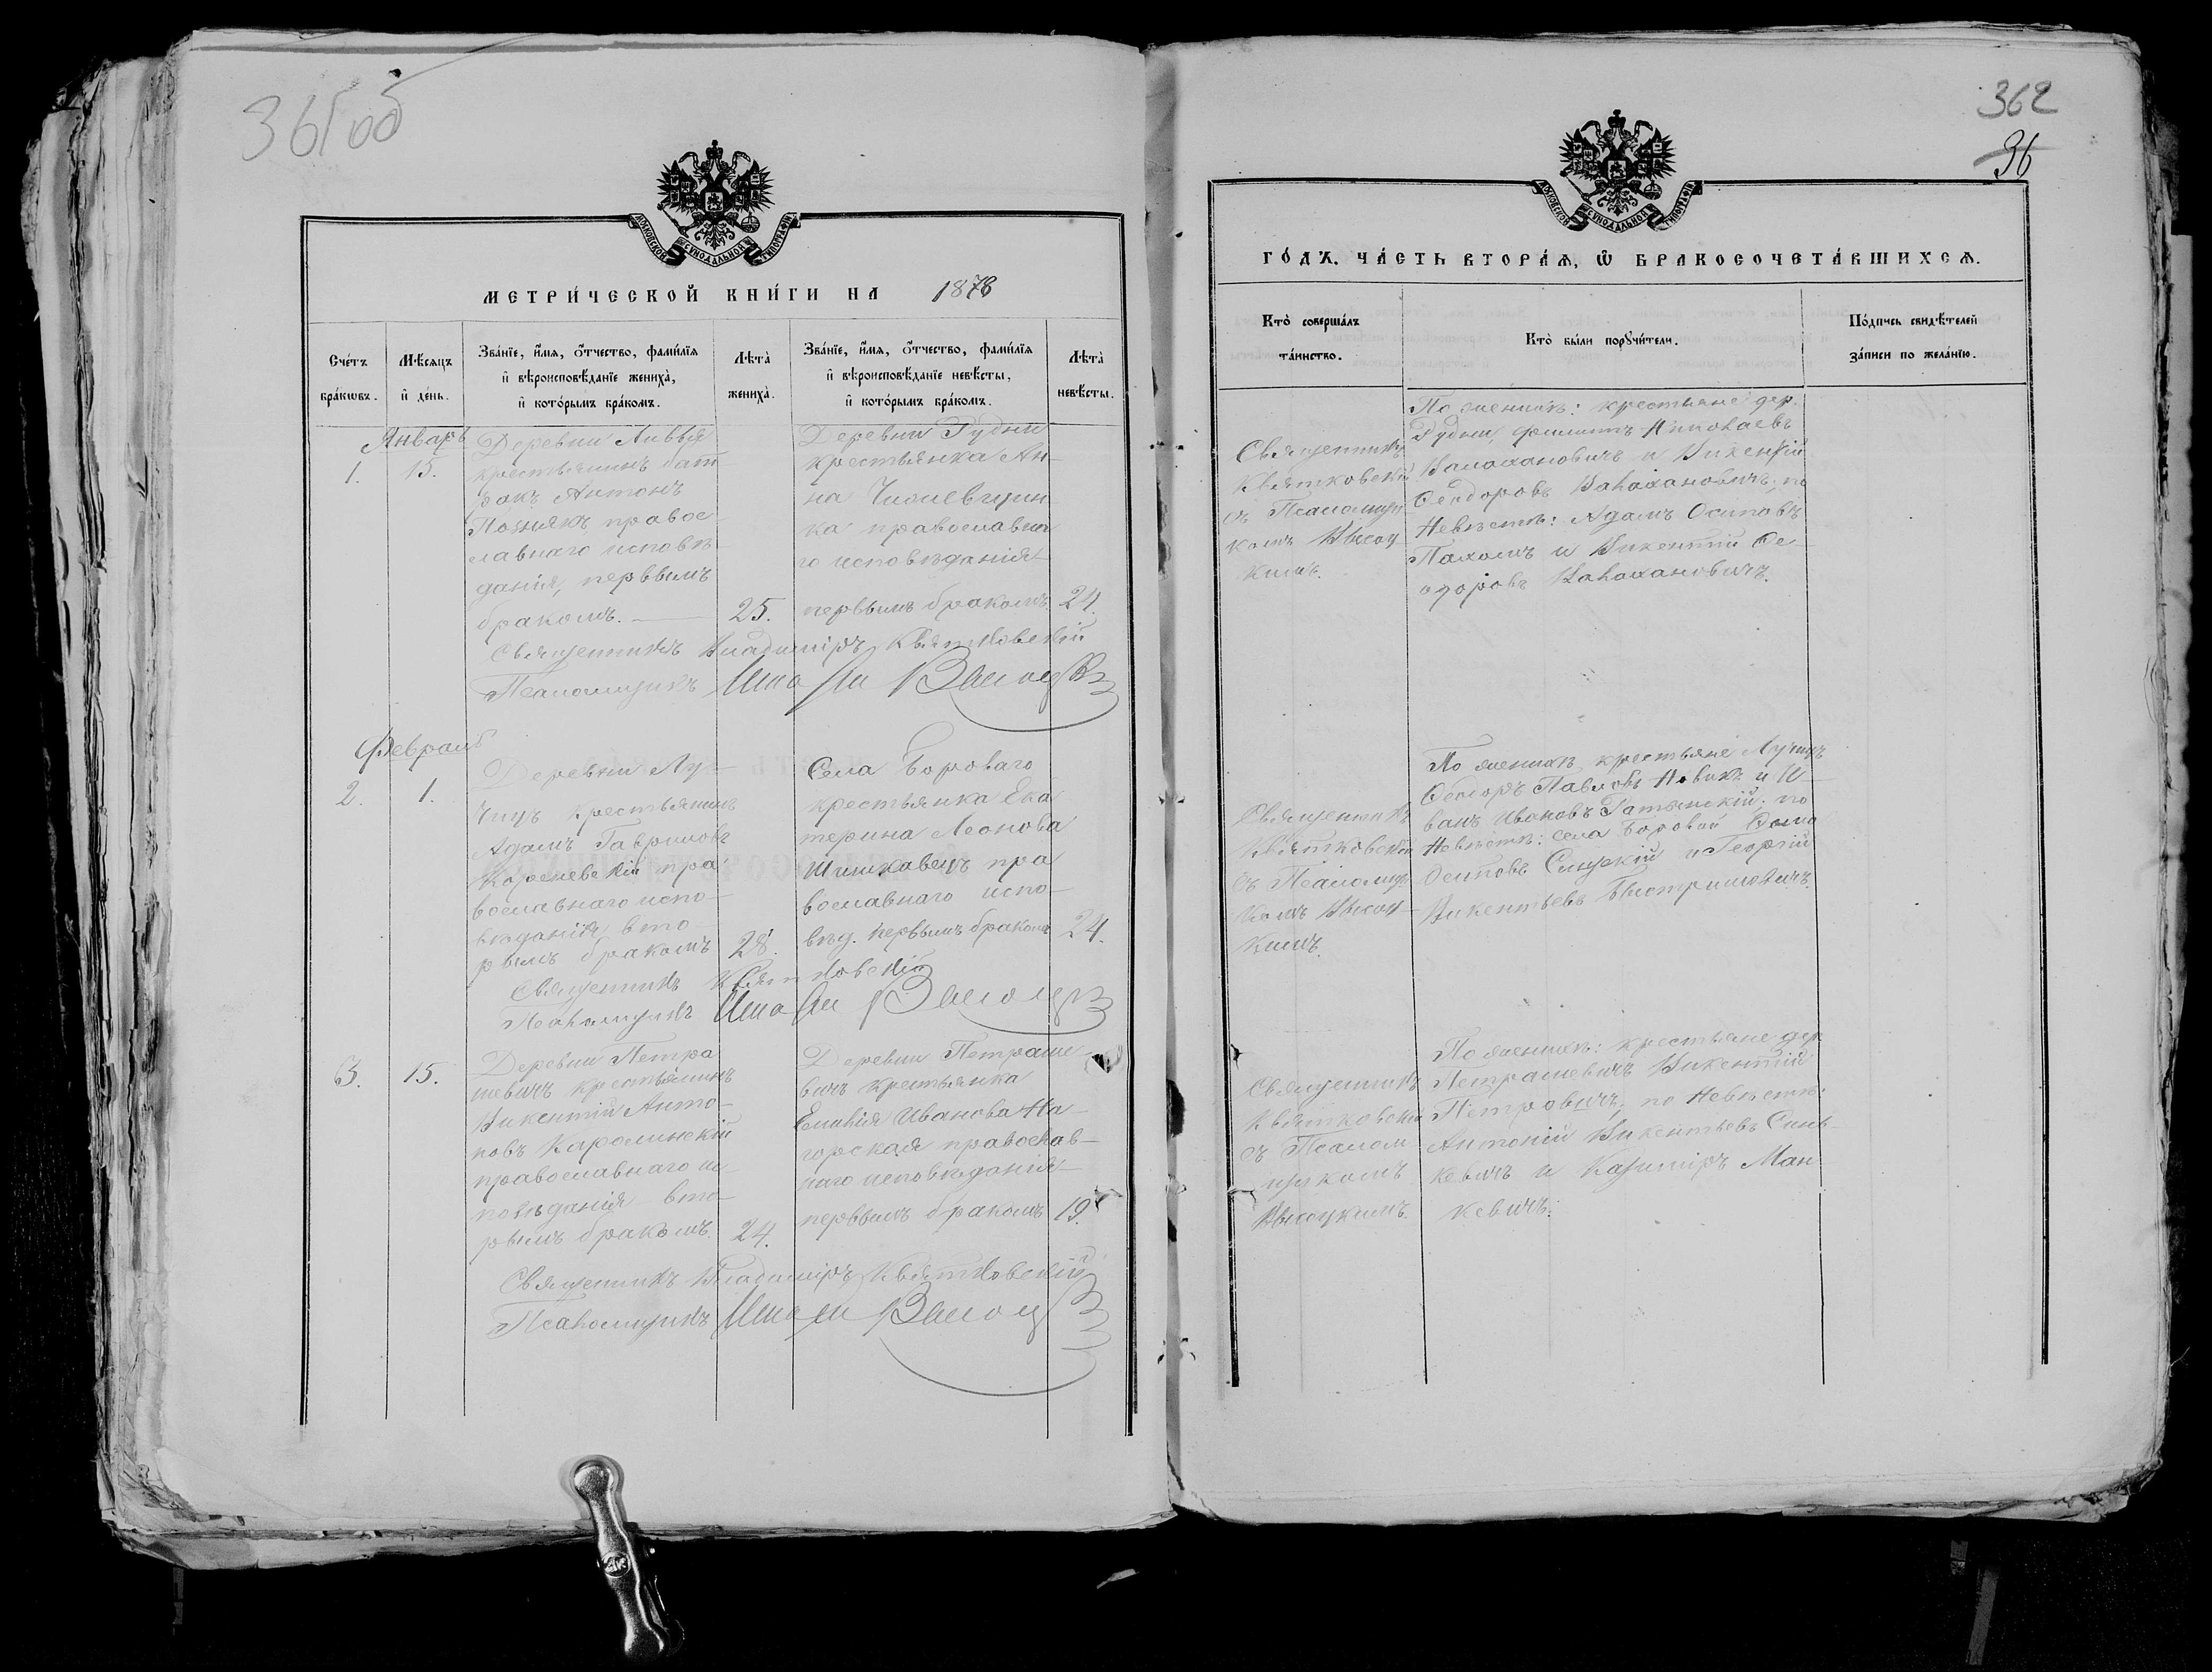 361об
МОСКОВСКОЙ СѴНОДАЛЬНОЙ ТИПОГРАФІИ
МЕТРИ́ЧЕСКОЙ КНИ́ГИ НА 1878
Сче́тъ бра́кѡвъ.
Мѣ́сяцъ и҆ де́нь.
Зва́нїе, и҆́мя, ѻ҆́тчество, фами́лїя и҆ вѣроисповѣ́данїе жениха̀, и҆ кото́рымъ бра́комъ.
Лѣта̀ жениха̀.
Зва́нїе, и҆́мя, ѻ҆́тчество, фами́лїя и҆ вѣроисповѣ́данїе невѣ́сты, и҆ кото́рымъ бра́комъ.
Лѣта̀ невѣ́сты.
Январь
1.
15.
Деревни
крестьянинъ
Антонъ
Познякъ правос-
лавнаго исповѣ-
данія, первымъ
бракомъ.
25.
Деревни Рудни
крестьянка Ан-
на
ка православна
го исповѣданія
первымъ бракомъ
24.
Священникъ Владиміръ Квятковскій
Псаломщикъ
Февраль
2.
1.
Деревни Лу-
чицъ крестьянинъ
Адамъ Гавриловъ
Кореневскій пра-
вославнаго испо-
вѣданія вто-
рымъ бракомъ
28.
Села Бороваго
крестьянка Ека
терина Леонова
пра
вославнаго испо-
вѣд. первымъ бракомъ
24.
Священникъ Квятковскій
Псаломщикъ
3.
15.
Деревни Петра
шевичъ крестьянинъ
Викентій Анто-
новъ Каролинскій
православнаго ис-
повѣданія вто-
рымъ бракомъ.
24.
Деревни Петраше-
вичъ крестьянка
Емилія Иванова На-
горская православ-
наго исповѣданія
первымъ бракомъ
19.
Священникъ Владиміръ Квятковскій
Псаломщикъ
362
36
МОСКОВСКОЙ СѴНОДАЛЬНОЙ ТИПОГРАФІИ
ГО́ДЪ. ЧА́СТЬ ВТОРА́Я, Ѡ҆ БРАКОСОЧЕТА́ВШИХСЯ.
Кто̀ соверша́лъ та́инство.
Кто̀ бы́ли порꙋчи́тели.
По́дпись свидѣ́телей за́писи по жела́нїю.
Священникъ
Квятковскій
съ Псаломщи
комъ Высоц-
кимъ.
По женихѣ: крестьяне дер.
Рудни, Николаевъ
и Викентій
Ѳеодоровъ по
невѣстѣ: Адамъ Осиповъ
и Викентій Ѳе-
одоровъ
Священникъ
Квятковскій
съ Псаломщи-
комъ Высоц-
кимъ.
По женихѣ крестьяне Лучицъ
Павловъ Новикъ и И-
ванъ Ивановъ по
невѣстѣ: села Боровой
Осиповъ и Георгій
Викентьевъ
Священникъ
Квятковскій
съ Псалом-
щикомъ
Высоцкимъ.
По женихѣ: крестьяне дер
Петрашевичъ Викентій
Петровичъ, по невѣстѣ:
Антоній Викентьевъ Синь-
кевичъ и КазиміръМан-
кевичъ.